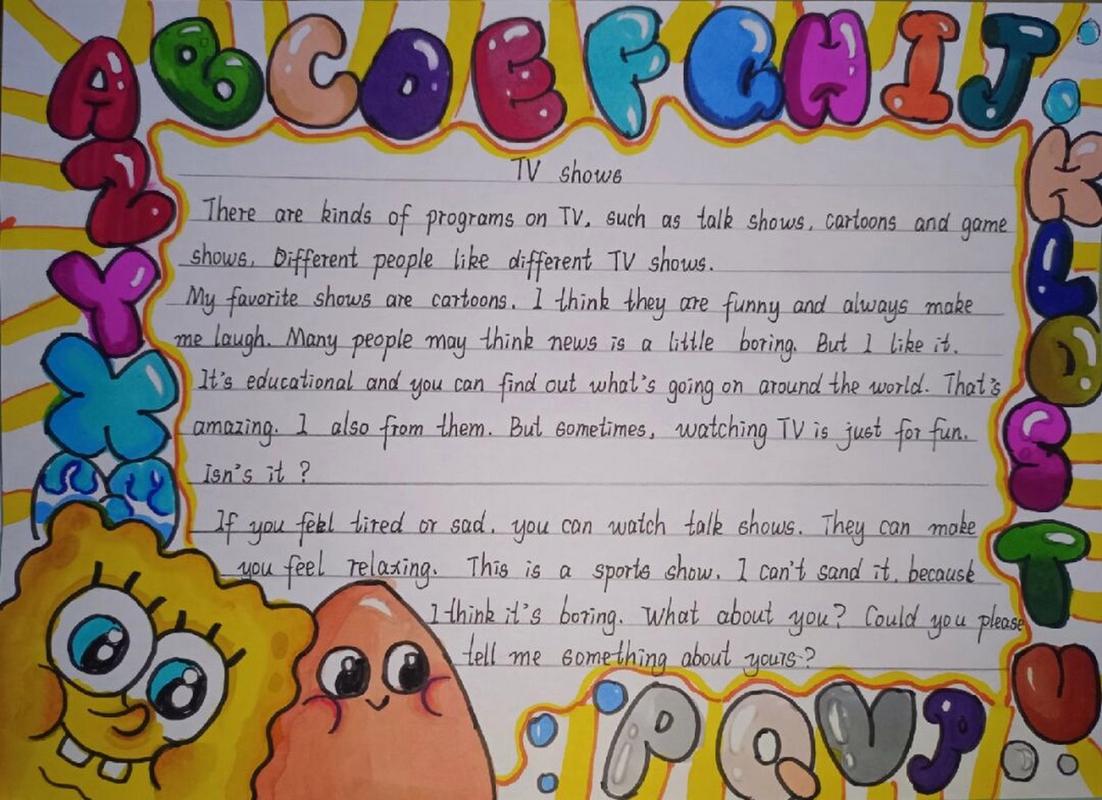 A B C D E F G H I J
K
L
O
S
T
U
P Q V P
Z
Y
X
TV shows
There are kinds of programs on TV, such as talk shows, cartoons and game
shows. Different people like different TV shows.
My favorite shows are cartoons. I think they are funny and always make
me laugh. Many people may think news is a little boring. But I like it.
It's educational and you can find out what's going on around the world. That's
amazing. I also from them. But sometimes, watching TV is just for fun.
isn's it ?
If you feel tired or sad, you can watch talk shows. They can make
you feel relaxing. This is a sports show. I can't sand it, because
I think it's boring. What about you? Could you please
tell me something about yours?